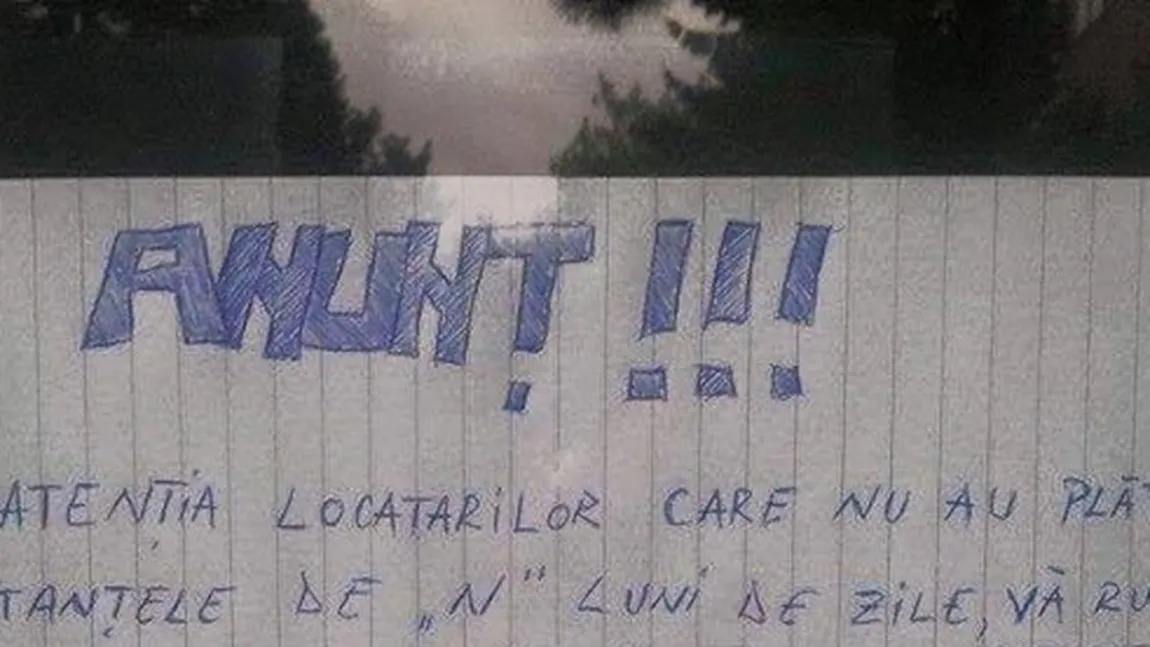 ANUNȚ!!!
ATENȚIA LOCATARILOR CARE NU AU PLĂT
TANȚELE DE „N" LUNI DE ZILE, VĂ RU